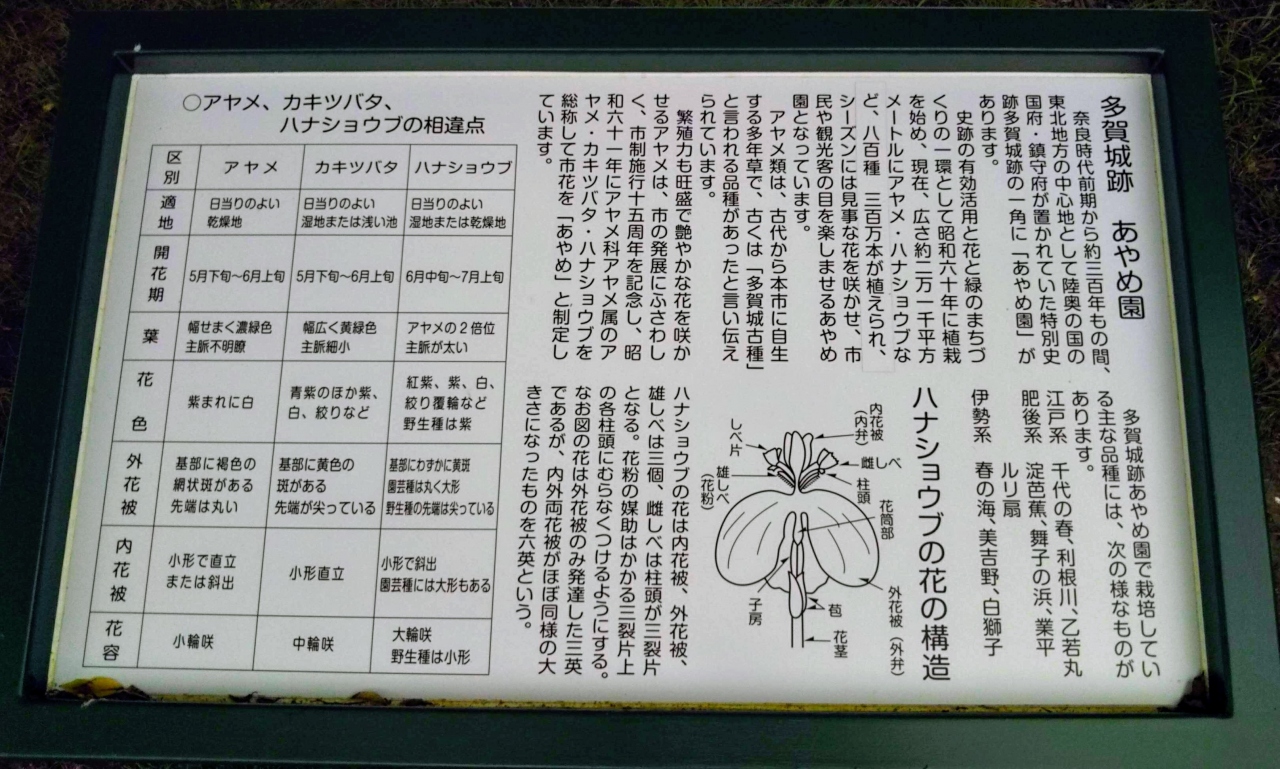 多賀城跡　あやめ園
奈良時代前期から約三百年もの間、
東北地方の中心地として陸奥の国の
国府・鎮守府が置かれていた特別史
跡多賀城跡の一角に「あやめ園」が
あります。
史跡の有効活用と花と緑のまちづ
くりの一環として昭和六十年に植栽
を始め、現在、広さ約二万一千平方
メートルにアヤメ・ハナショウブな
ど、八百種　三百万本が植えられ、
シーズンには見事な花を咲かせ、市
民や観光客の目を楽しませるあやめ
園となっています。
アヤメ類は、古代から本市に自生
する多年草で、古くは「多賀城古種」
と言われる品種があったと言い伝え
られています。
繁殖力も旺盛で艶やかな花を咲か
せるアヤメは、市の発展にふさわし
く、市制施行十五周年を記念し、昭
和六十一年にアヤメ科アヤメ属のア
ヤメ・カキツバタ・ハナショウブを
総称して市花を「あやめ」と制定し
ています。
多賀城跡あやめ園で栽培してい
る主な品種には、次の様なものが
あります。
江戸系　千代の春、利根川、乙若丸
肥後系　淀芭蕉、舞子の浜、業平
ルリ扇
伊勢系　春の海、美吉野、白獅子
ハナショウブの花の構造
内花被
（内弁）
しべ片
雌しべ
柱頭
雄しべ
（花粉）
花筒部
外花被（外弁）
子房
苞
花茎
ハナショウブの花は内花被、外花被、
雄しべは三個、雌しべは柱頭が三裂片
となる。花粉の媒助はかかる三裂片上
の各柱頭にむらなくつけるようにする。
なお図の花は外花被のみ発達した三英
であるが、内外両花被がほぼ同様の大
きさになったものを六英という。
○アヤメ、カキツバタ、
ハナショウブの相違点
区別　アヤメ　カキツバタ　ハナショウブ
適地　日当りのよい　日当りのよい　日当りのよい
乾燥地　湿地または浅い池　湿地または乾燥地
開花期　5月下旬～6月上旬　5月下旬～6月上旬　6月中旬～7月上旬
葉　幅せまく濃緑色　幅広く黄緑色　アヤメの２倍位
主脈不明瞭　主脈細小　主脈が太い
花色　紫まれに白　青紫のほか紫、　紅紫、紫、白、
白、絞りなど　絞り覆輪など
野生種は紫
外花被　基部に褐色の　基部に黄色の　基部にわずかに黄斑
網状斑がある　斑がある　園芸種は丸く大形
先端は丸い　先端が尖っている　野生種の先端は尖っている
内花被　小形で直立　小形直立　小形で斜出
または斜出　園芸種には大形もある
花容　小輪咲　中輪咲　大輪咲
野生種は小形